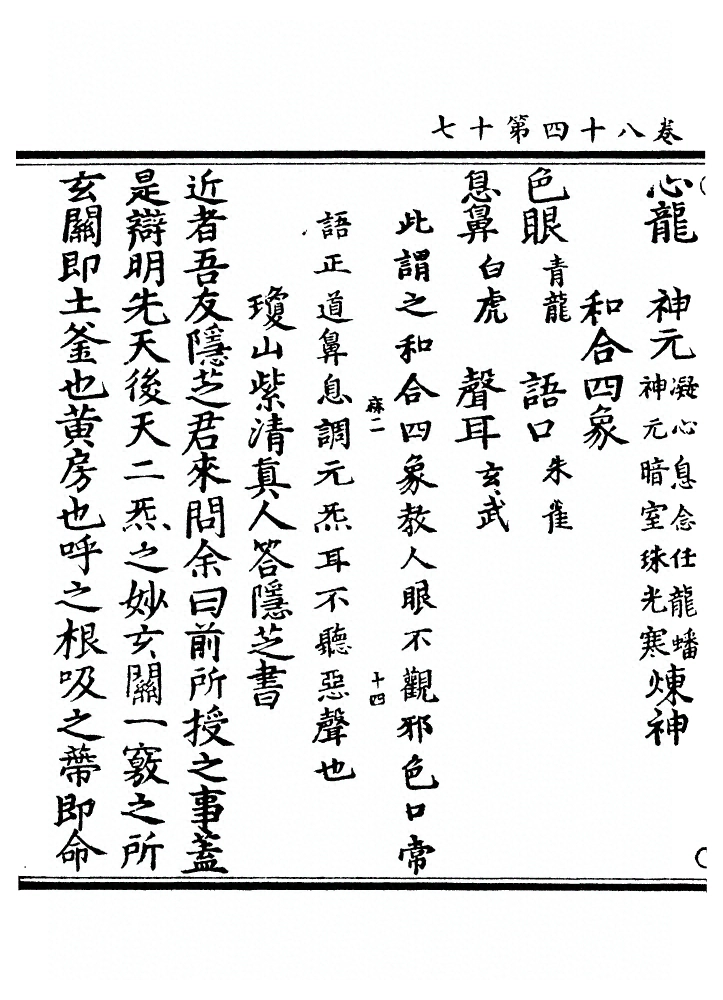 卷八十四第十七
心龍　神元凝心息念任龍蟠神元暗室珠光寒煉神
和合四象
色眼青龍　語口朱雀
息鼻白虎　聲耳玄武
此謂之和合四象教人眼不觀邪色口常
麻二　十四
語正道鼻息調元炁耳不聽惡聲也
瓊山紫清真人答隱芝書
近者吾友隱芝君來問余曰前所授之事蓋
是辯明先天後天二炁之妙玄關一竅之所
玄關即土釜也黃房也呼之根吸之蔕即命